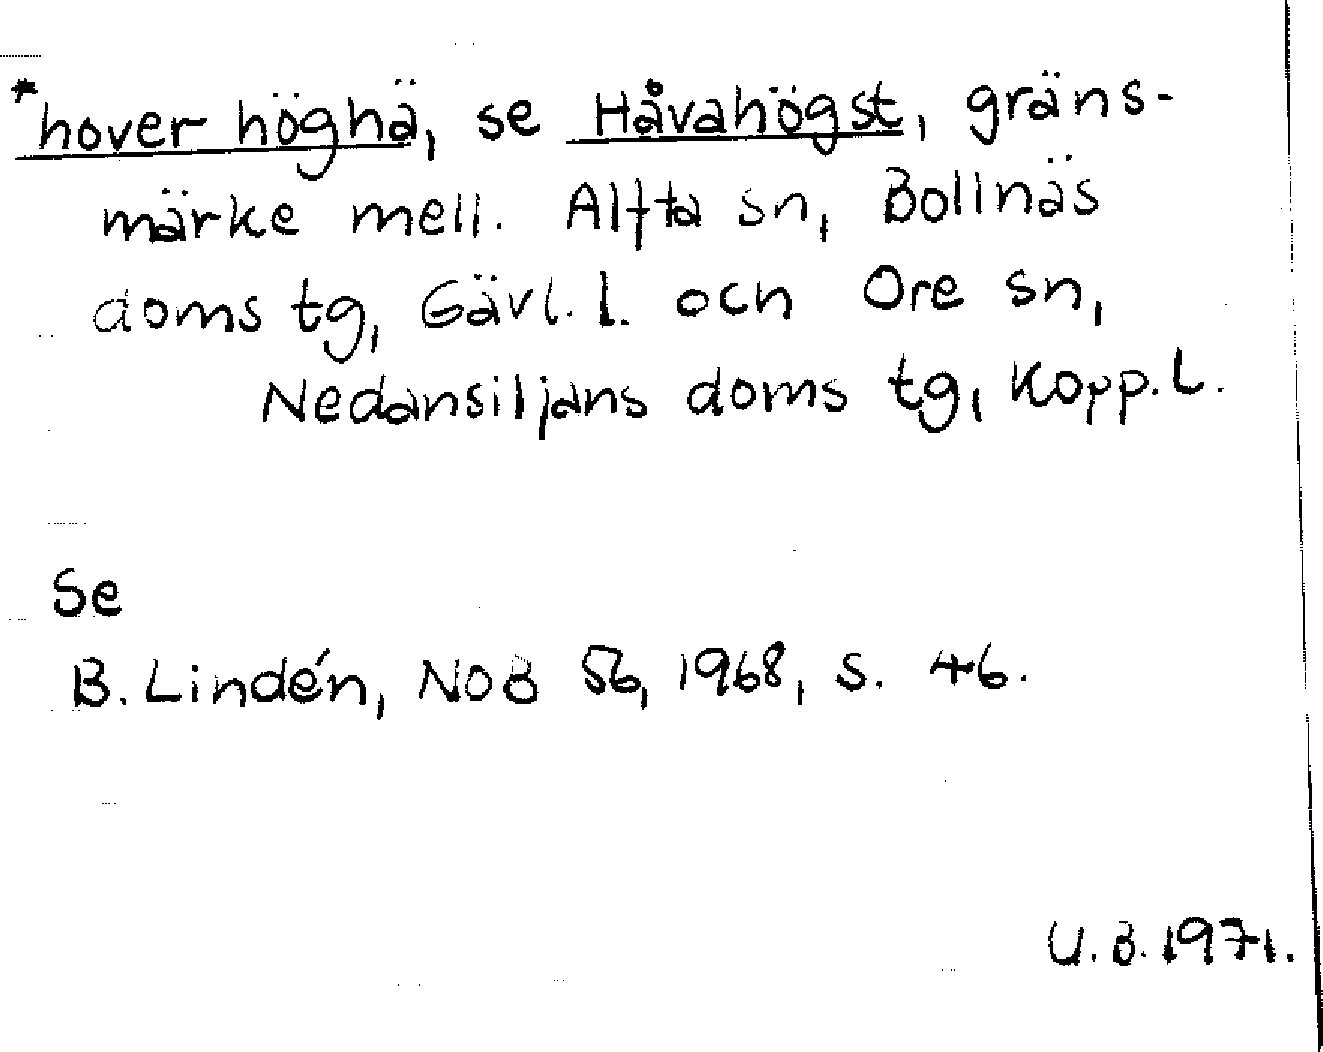 *hover höghä, se Håvahögst, gräns-
märke mell. Alfta sn, Bollnäs
doms tg, Gävl. l. och Ore sn,
Nedansiljans doms tg, Kopp. L.
Se
B. Lindén, NOB 56, 1968, s. 46.
U. B. 1971.